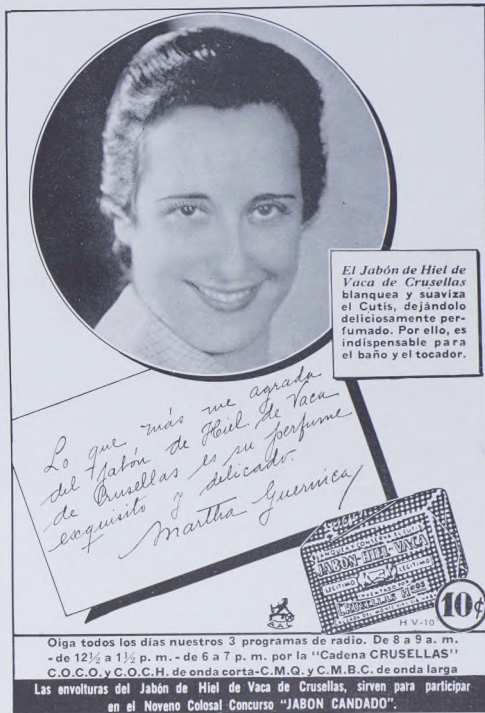 El Jabón de Hiel de
Vaca de Crusellas
blanquea y suaviza
el Cutis, dejándolo
deliciosamente per-
fumado. Por ello, es
indispensable para
el baño y el tocador.
Lo que más me agrada
del Jabón de Hiel de Vaca
de Crusellas es su perfume
exquisito y delicado.
Martha Guernica
BLANQUEA Y CONSERVA EL CUTIS
JABON-HIEL-VACA
LEGITIMO LEGITIMO
CRUSELLAS
H V-10
10¢
Oiga todos los días nuestros 3 programas de radio. De 8 a 9 a. m.
- de 12½ a 1½ p. m. - de 6 a 7 p. m. por la "Cadena CRUSELLAS"
C.O.C.O. y C.O.C.H. de onda corta-C.M.Q. y C.M.B.C. de onda larga
Las envolturas del Jabón de Hiel de Vaca de Crusellas, sirven para participar
en el Noveno Colosal Concurso "JABON CANDADO".